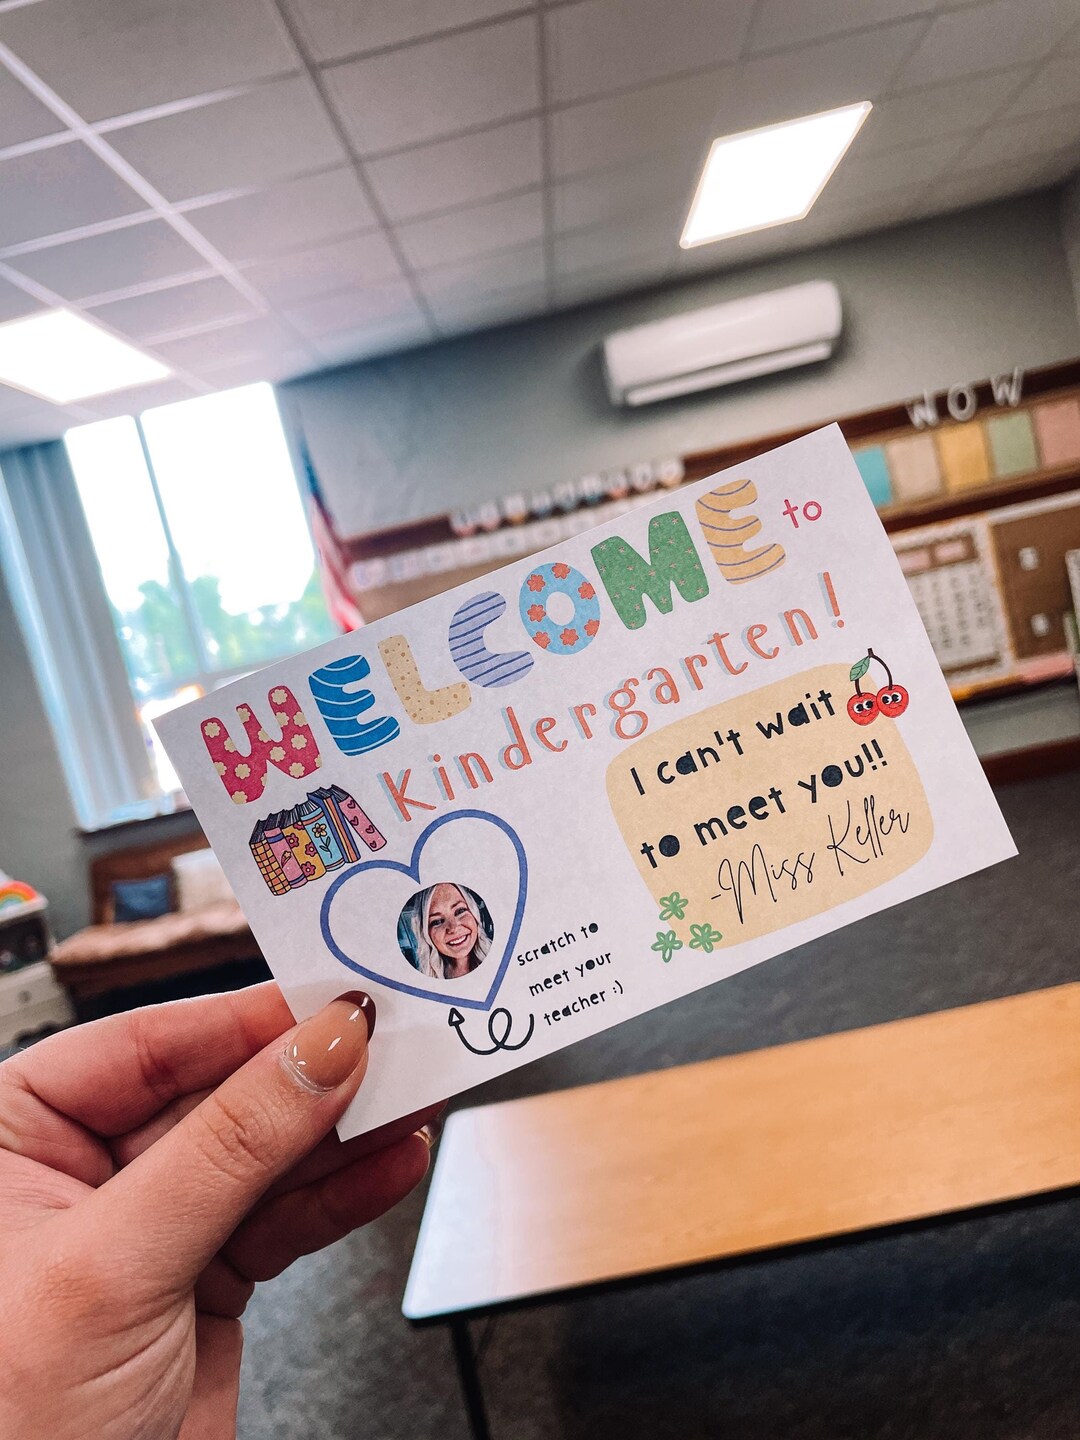 WOW
WELCOME to
Kindergarten!
I can't wait
to meet you!!
-Miss Keller
scratch to
meet your
teacher :)